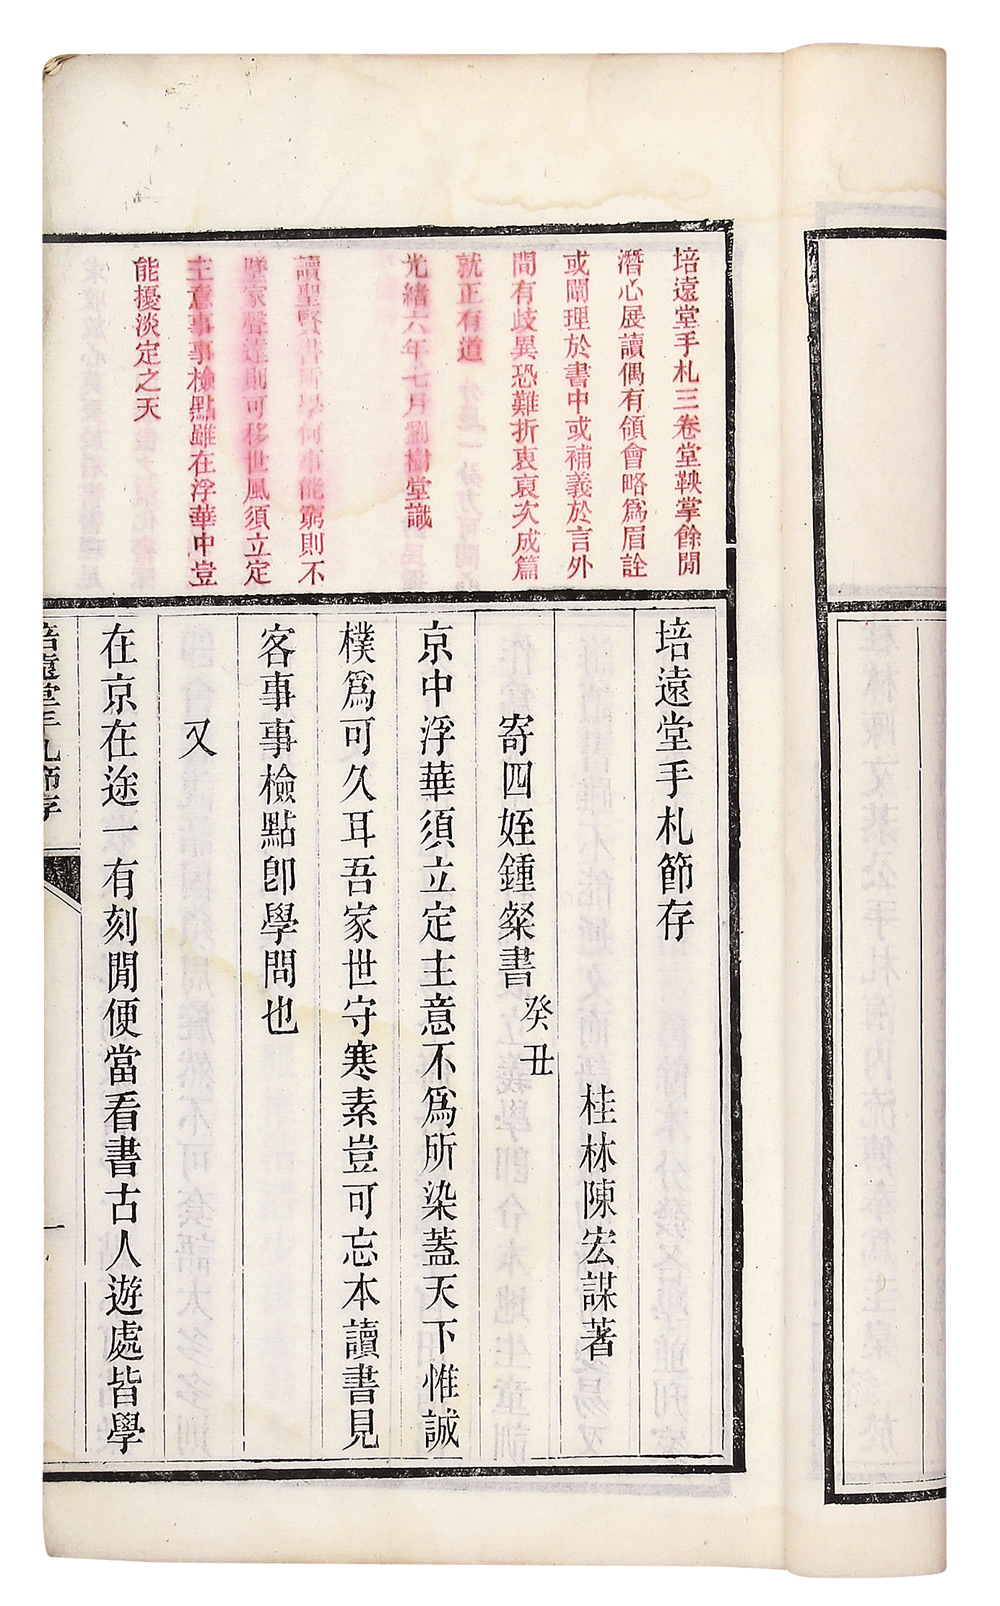 培遠堂手札三卷堂鞅掌餘閒
潛心展讀偶有領會略爲眉詮
或闡理於書中或補義於言外
間有歧異恐難折衷裒次成篇
就正有道
光緒六年七月劉樹堂識
讀聖賢書所學何事能窮則不
墜家聲達則可移世風須立定
主意事事檢點雖在浮華中豈
能擾淡定之天
培遠堂手札節存
桂林陳宏謀著
寄四姪鍾粲書癸丑
京中浮華須立定主意不爲所染蓋天下惟誠
樸爲可久耳吾家世守寒素豈可忘本讀書見
客事事檢點卽學問也
又
在京在途一有刻閒便當看書古人遊處皆學
培遠堂手札節存
一